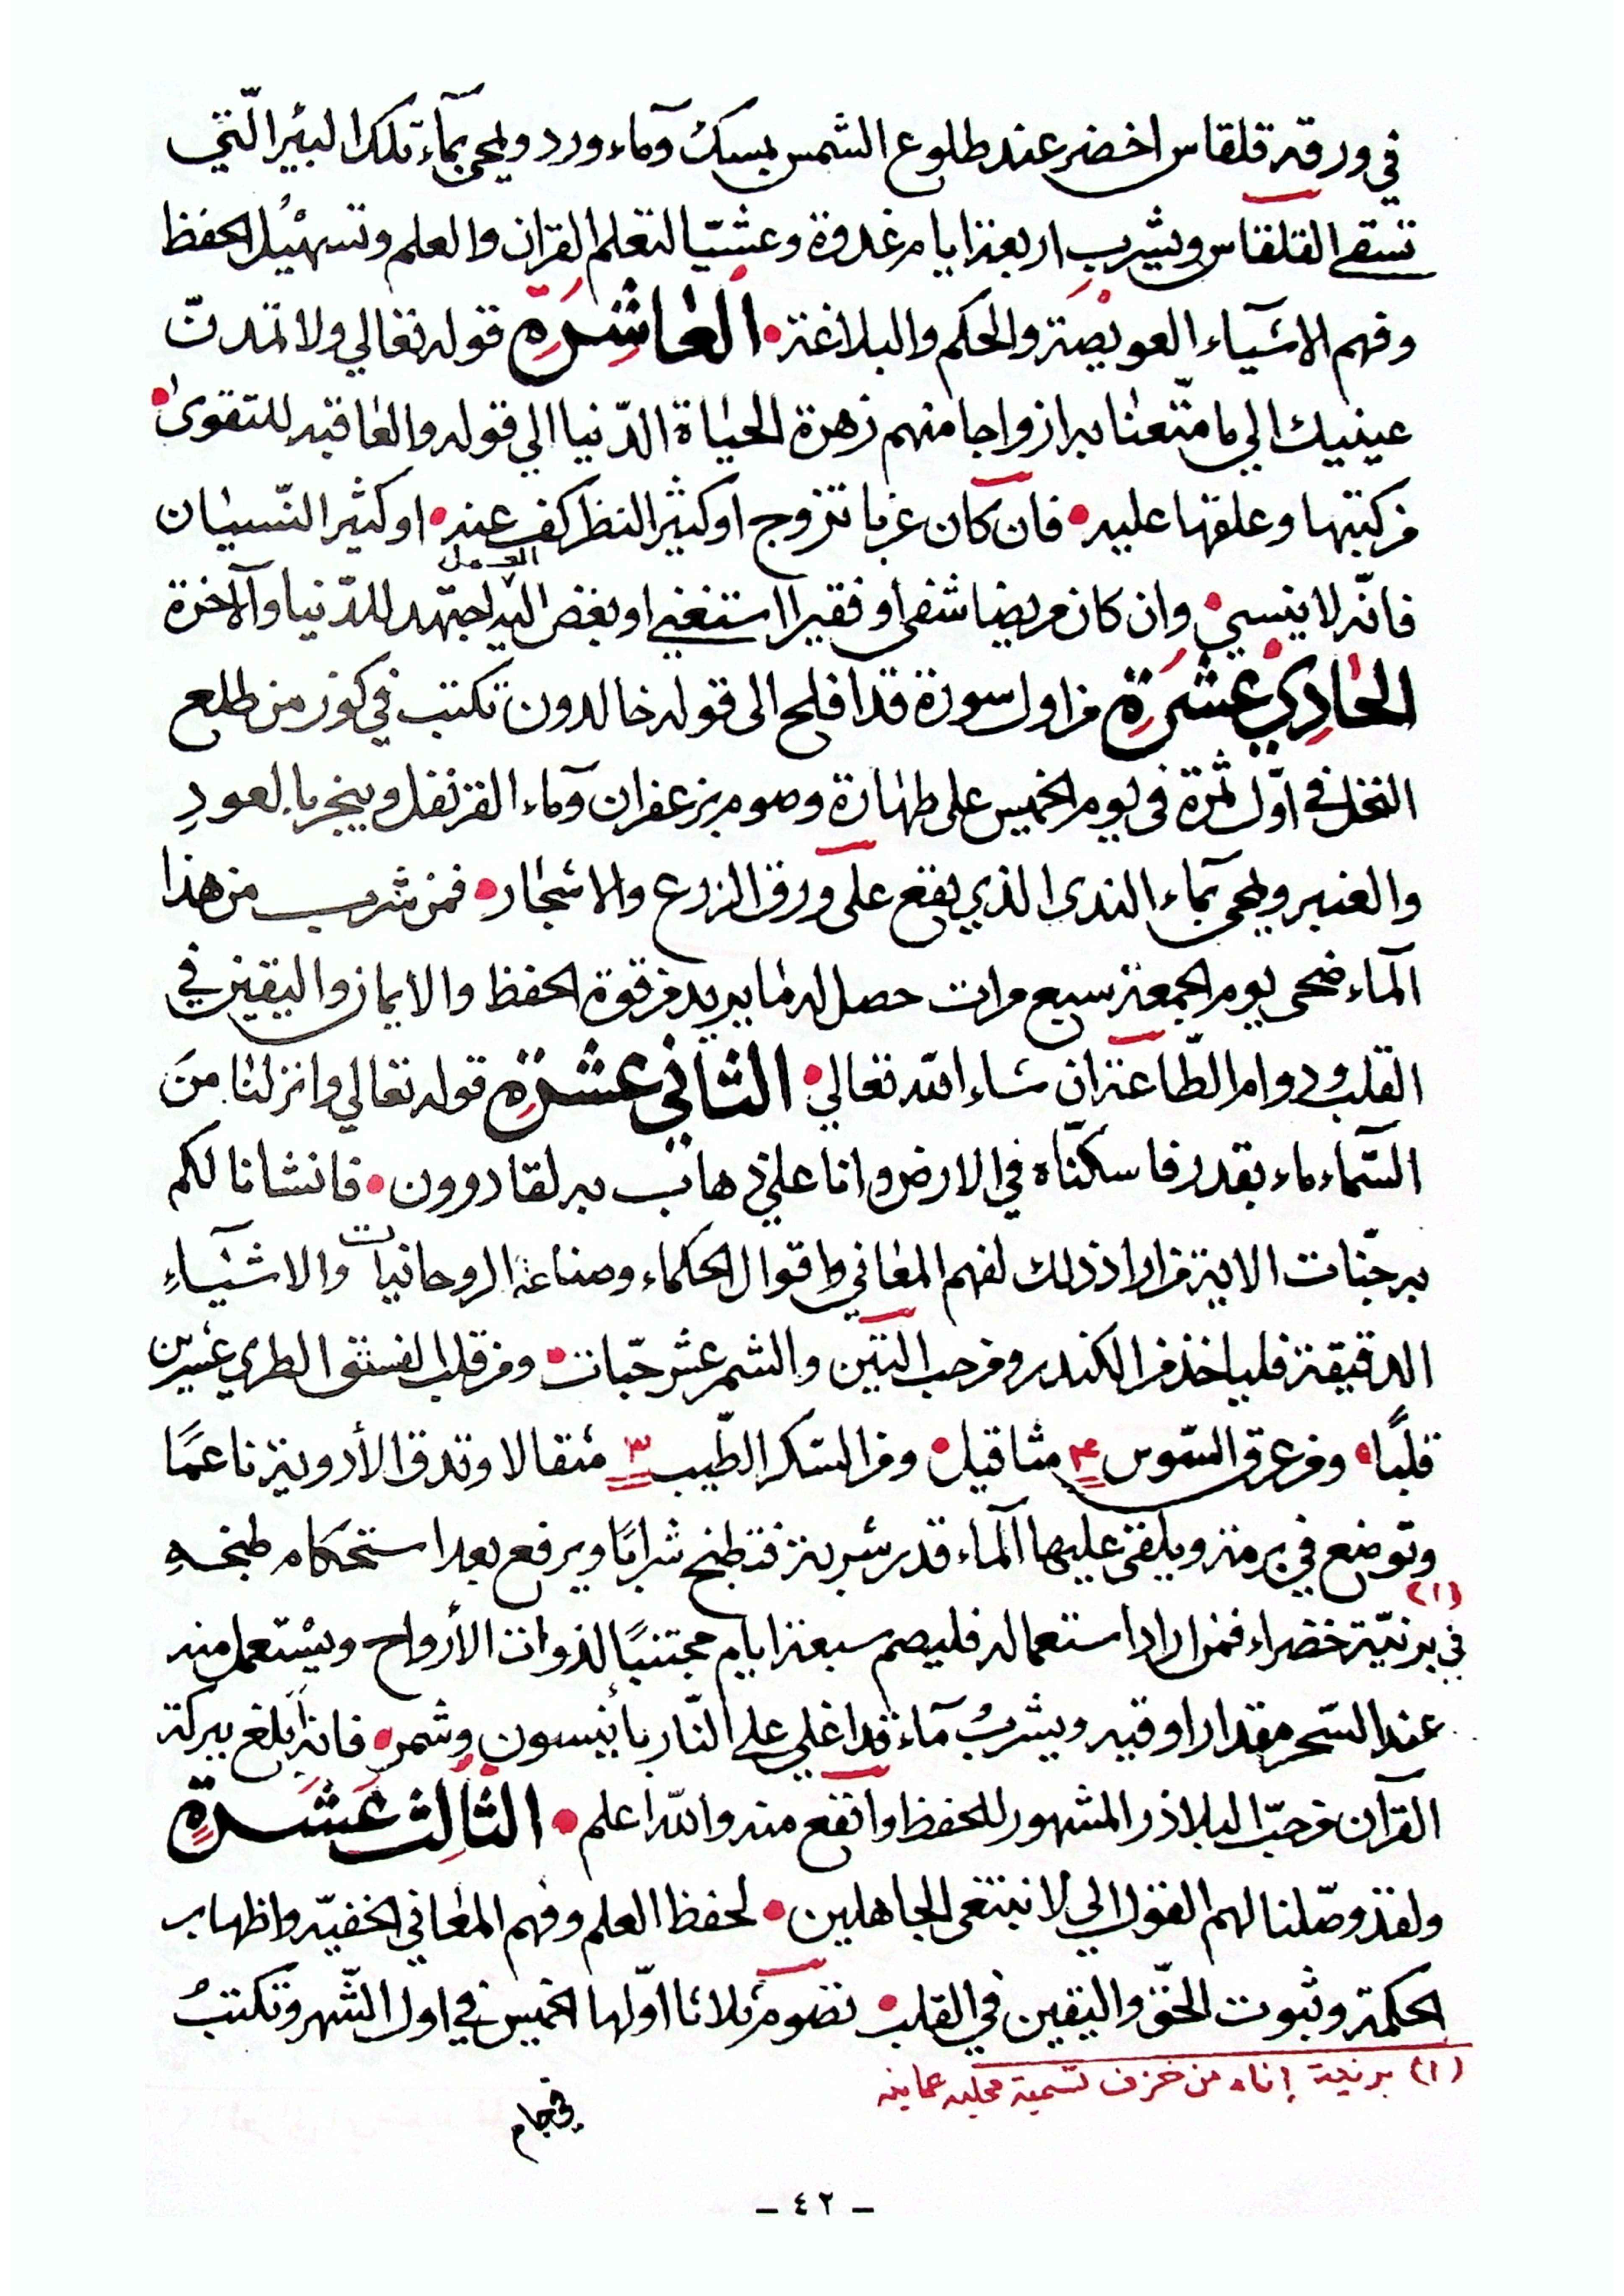 في ورقة قلقاس اخضر عند طلوع الشمس بمسك وماء ورد ويمحى بماء تلك البئر الّتي
تسقى القلقاس ويشرب اربعة ايام غدوة وعشيّا لتعلم القران والعلم وتسهيل الحفظ
وفهم الاشياء العويصة والحكم والبلاغة • العاشرة قوله تعالي ولا تمدنّ
عينيك الي ما متّعنا به ازواجا منهم زهرة الحياة الدّنيا الي قوله والعاقبه للتقوى •
من كتبها وعلقها عليه • فان كان عزبا تزوج او كثير النظر كف عنه • او كثير النّسيان
فانّه لا ينسي • وان كان مريضا شفي أو فقيرا استغني او بغض اليه العمل اجتهد للدّنيا والآخرة
الحادي عشرة من اول سورة قد افلح الى قوله خالدون تكتب في كوز من طلع
النخل في اوّل ثمرة في يوم الخميس على طهارة وصوم بزعفران وماء القرنفل ويبخر بالعود
والعنبر ويمحى بماء الندى الذي يقع على ورق الزرع والاشجار • فمن شرب من هذا
الماء ضحى يوم الجمعة سبع مرات حصل له ما يريد من قوة الحفظ والايمان واليقين في
القلب ودوام الطّاعة ان شاء الله تعالي • الثاني عشرة قوله تعالي وانزلنا من
السّماء ماء بقدر فاسكنّاه في الارض وانا علي ذهاب به لقادرون • فانشانا لكم
به جنّات الاية من اراد ذلك لفهم المعاني واقوال الحكماء وصناعة الروحانيات والاشياء
الدقيقة فلياخذ من الكندر ومن حب التين والشمر عشر حبّات • ومن قلب الفستق الطري عشرين
قلبًا • ومن عرق السّوس ٣ مثاقيل • ومن السّكر الطّيب ٣ مثقالا وتدق الأدوية ناعمًا
وتوضع في برمة ويلقى عليها الماء قدر شربة فتطبخ شرابًا ويرفع بعد استحكام طبخه
في برنيّة (١) خضراء فمن اراد استعماله فليصم سبعة ايام مجتنبًا لذوات الأرواح ويستعمل منه
عند السّحر مقدار اوقيه ويشرب ماء قد اغلي على النّار بانيسون وشمر • فانه أبلغ ببركة
القرآن من حبّ البلاذر المشهور للحفظ وانفع منه والله اعلم • الثالث عشرة
ولقد وصّلنا لهم القول الي لا نبتغي الجاهلين • لحفظ العلم وفهم المعاني الخفيّه واظهار
الحكمة وثبوت الحقّ واليقين في القلب • تصوم ثلاثا اوّلها الخميس في اول الشّهر وتكتب
(١) برنية إناء من خزف تسمية محليه عمانيه
في جام
- ٤٢ -